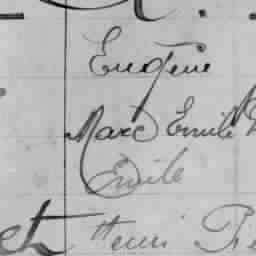 Eugène
Marc Emile
Emile
et Henri